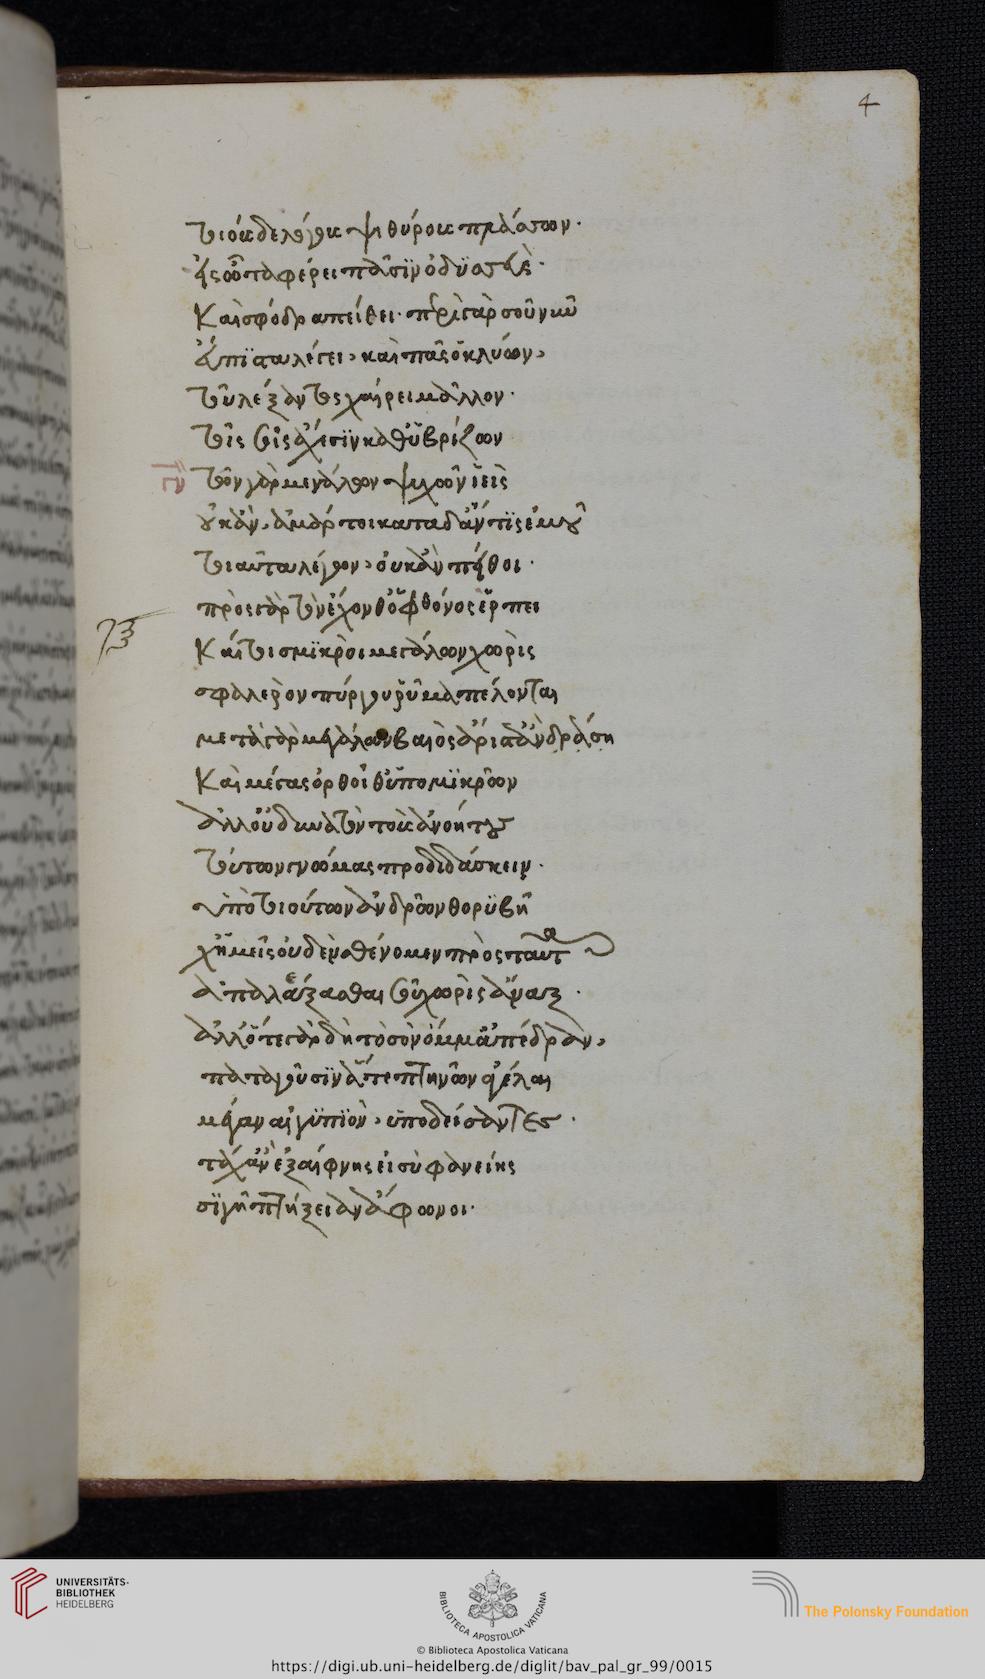 4
τοιούσδε λόγους ψιθύρους πλάσσων.
εἰς ὦτα φέρει πᾶσιν ὀδυσσεὺς.
Καὶ σφόδρα πείθει. περὶ γὰρ σοῦ νῦν
εὔπιστα λέγει, καὶ πᾶς ὁ κλύων,
τοῦ λέξαντος χαίρει μᾶλλον.
τοῖς σοῖς ἄχεσιν καθυβρίζων
τῶν γὰρ μεγάλων ψυχῶν ἱεὶς
οὐκ ἂν, ἁμάρτοι κατὰ δ' ἄν τις ἐμοῦ
τοιαῦτα λέγων, οὐκ ἂν πείθοι.
πρὸς γὰρ τὸν ἔχονθ' ὁ φθόνος ἕρπει
Καί τοι σμικροὶ μεγάλων χωρὶς
σφαλερὸν πύργου ῥῦμα πέλονται
μετὰ γὰρ μεγάλων βαιὸς ἄριστ' ἂν
Καὶ μέγας ὀρθοῖθ' ὑπὸ μικρῶν
ἀλλ' οὐ δυνατὸν τοὺς ἀνοήτους
τούτων γνώμας προδιδάσκειν.
ὑπὸ τοιούτων ἀνδρῶν θορυβῇ
χἠμεῖς οὐδὲν σθένομεν πρὸς ταῦτ
ἀπαλέξασθαι σοῦ χωρὶς ἄναξ.
ἀλλ' ὅτε γὰρ δὴ τὸ σὸν ὄμμ' ἀπέδραν,
παταγοῦσιν ἅτε πτηνῶν ἀγέλαι
μέγαν αἰγυπιὸν, ὑποδείσαντες.
τάχ' ἂν ἐξαίφνης εἰ σὺ φανείης
σιγῇ πτήξειαν ἄφωνοι.
UNIVERSITÄTS-
BIBLIOTHEK
HEIDELBERG
BIBLIOTECA APOSTOLICA VATICANA
The Polonsky Foundation
© Biblioteca Apostolica Vaticana
https://digi.ub.uni-heidelberg.de/diglit/bav_pal_gr_99/0015